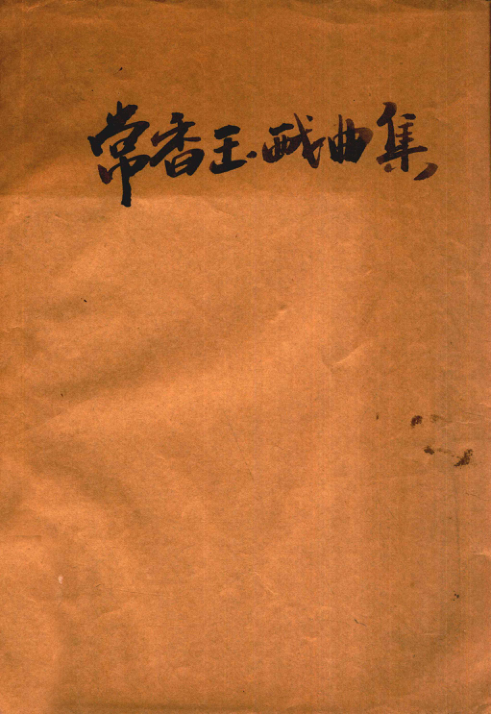 常香玉戏曲集